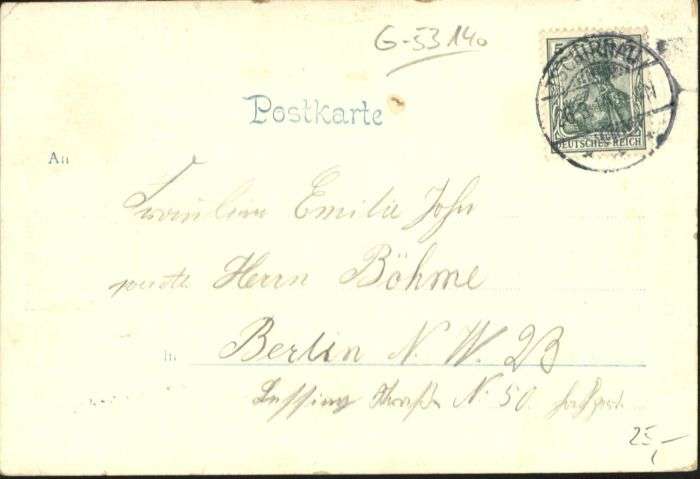 G-53140
Postkarte
5
TSCHIRNAU
DEUTSCHES REICH
An
Fräulein Emilie John
Herrn Böhme
In Berlin N. W. 23
Lessing Straße No 50.
25,-